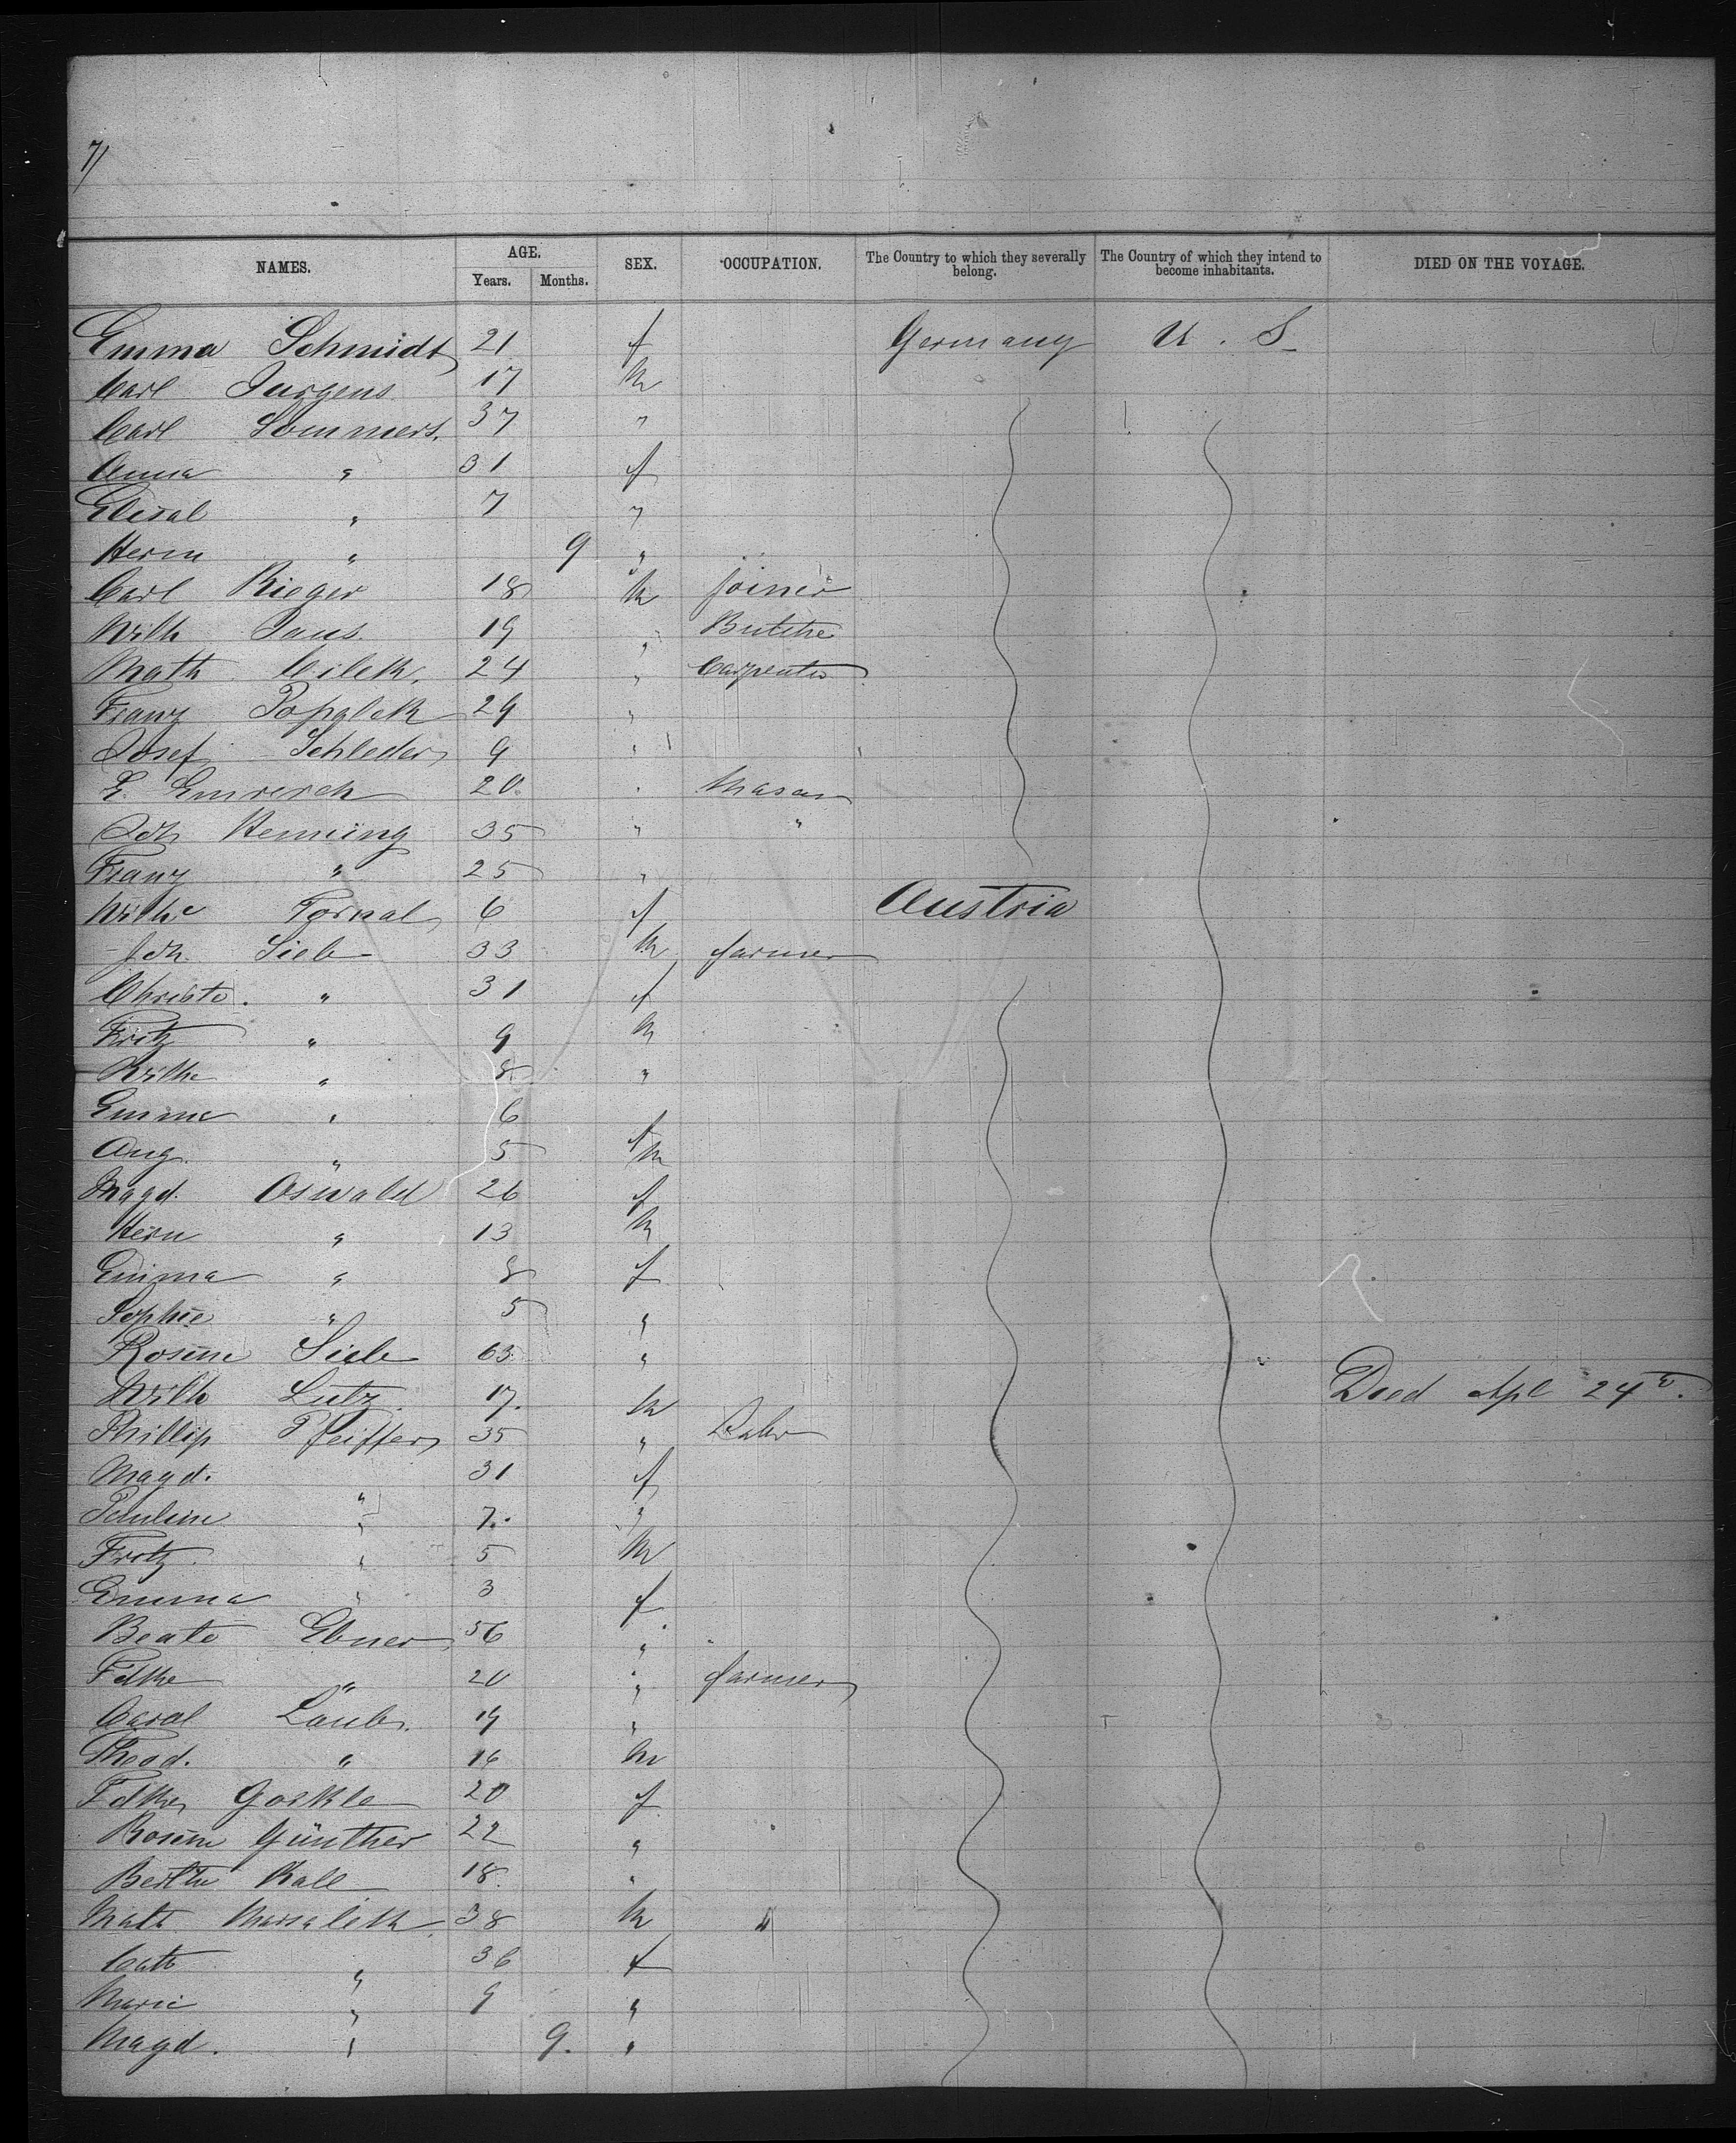 7/
NAMES. AGE. SEX. OCCUPATION. The Country to which they severally belong. The Country of which they intend to become inhabitants. DIED ON THE VOYAGE.
Years. Months.
Emma Schmidt 21 f Germany U. S.
Carl Jurgens 17 m
Carl Sommers. 37 "
Anna " 31 f
Elisab " 7 "
Herm " 9 "
Carl Rieger 18 m joiner
Wilh Jans. 19 " Butche
Math Cilek. 24 " Carpenter
Franz Popalek 29 "
Josef Schleder 9 "
E. Emrerch 20. " Mason
Joh Henning 35 " "
Franz " 25 "
Wilhe Tornal 6 f Austria
Joh. Sieb 33 m farmer
Christe. " 31 f
Fritz " 9 m
Wilhe " 8 "
Emma " 6 f
Aug. " 5 m
Magd. Oswald 26 f
Herm " 13 m
Emma " 8 f
Sophie " 5 "
Rosine Sieb 63 "
Wilh Lutz. 17. m Died Apl 24
Phillip Pfeiffer 35 " Labr
Magd. " 31 f
Pauline " 7. "
Fritz " 5 m
Emma " 3 f
Beate Ebner 56 "
Fdke " 20 " farmer
Carol Laub. 19 "
Theod. " 16 m
Fdke Goekle 20 f
Rosine Günther 22 "
Berthe Kall 18. "
Math Marsalek 38 m "
Cath " 36 f
Marie " 9 "
Magd. " 9. "